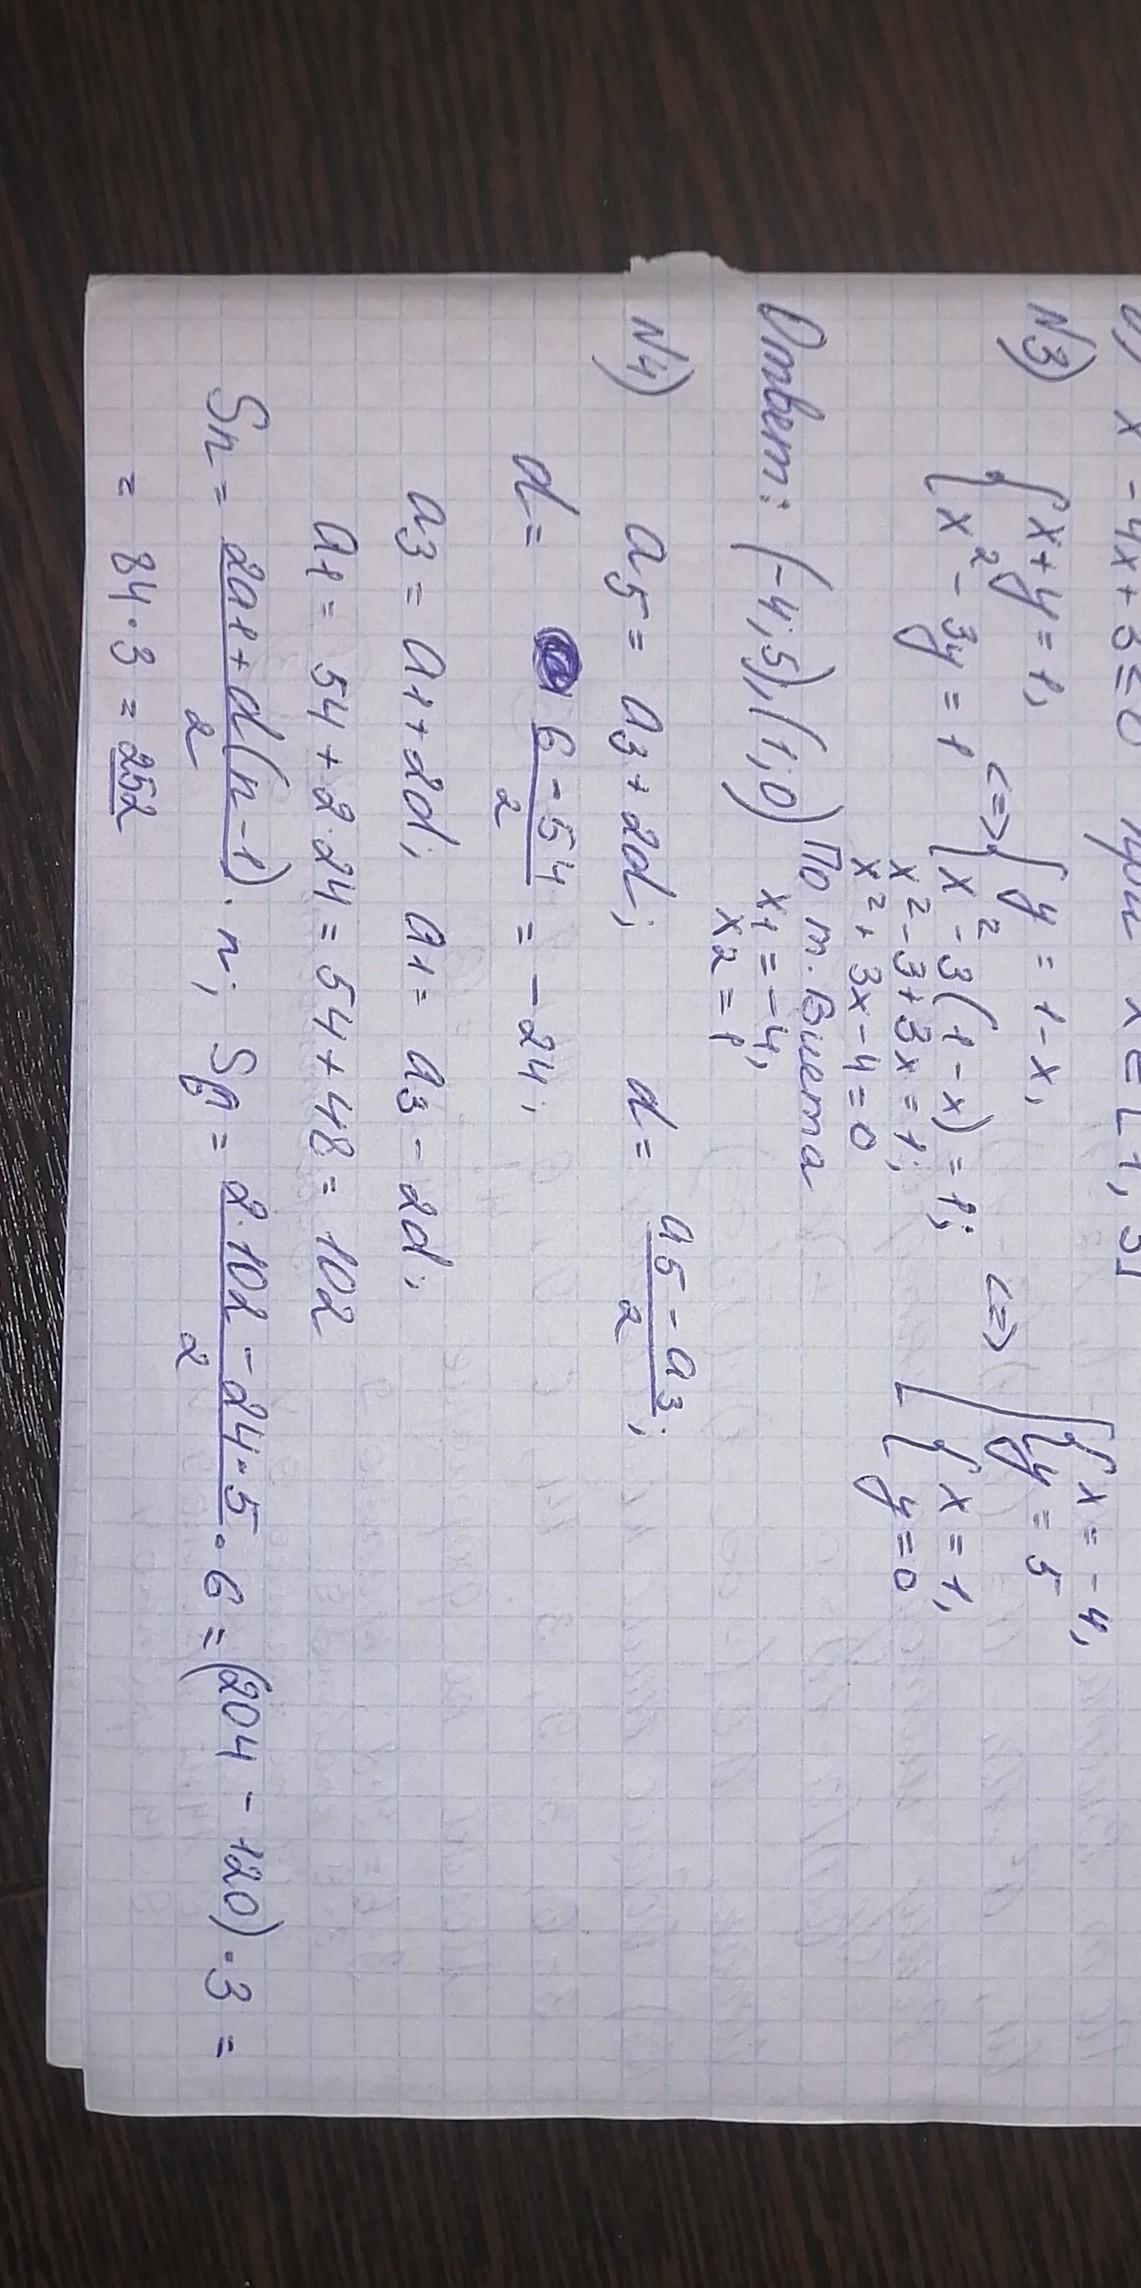 x - 4x + 3 ≤ 0 при x ∈ [1; 3]
N3) { x + y = 1, x² - 3y = 1 <=> { y = 1 - x, x² - 3(1 - x) = 1; <=> [ { x = -4, y = 5 { x = 1, y = 0
x² - 3 + 3x = 1;
x² + 3x - 4 = 0
По т. Виета
x1 = -4,
x2 = 1
Ответ: (-4; 5), (1; 0)
N4) a5 = a3 + 2d; d = (a5 - a3)/2;
d = (6 - 54)/2 = -24;
a3 = a1 + 2d; a1 = a3 - 2d;
a1 = 54 + 2·24 = 54 + 48 = 102
Sn = (2a1 + d(n - 1))/2 · n; S6 = (2·102 - 24·5)/2 · 6 = (204 - 120)·3 =
= 84·3 = 252